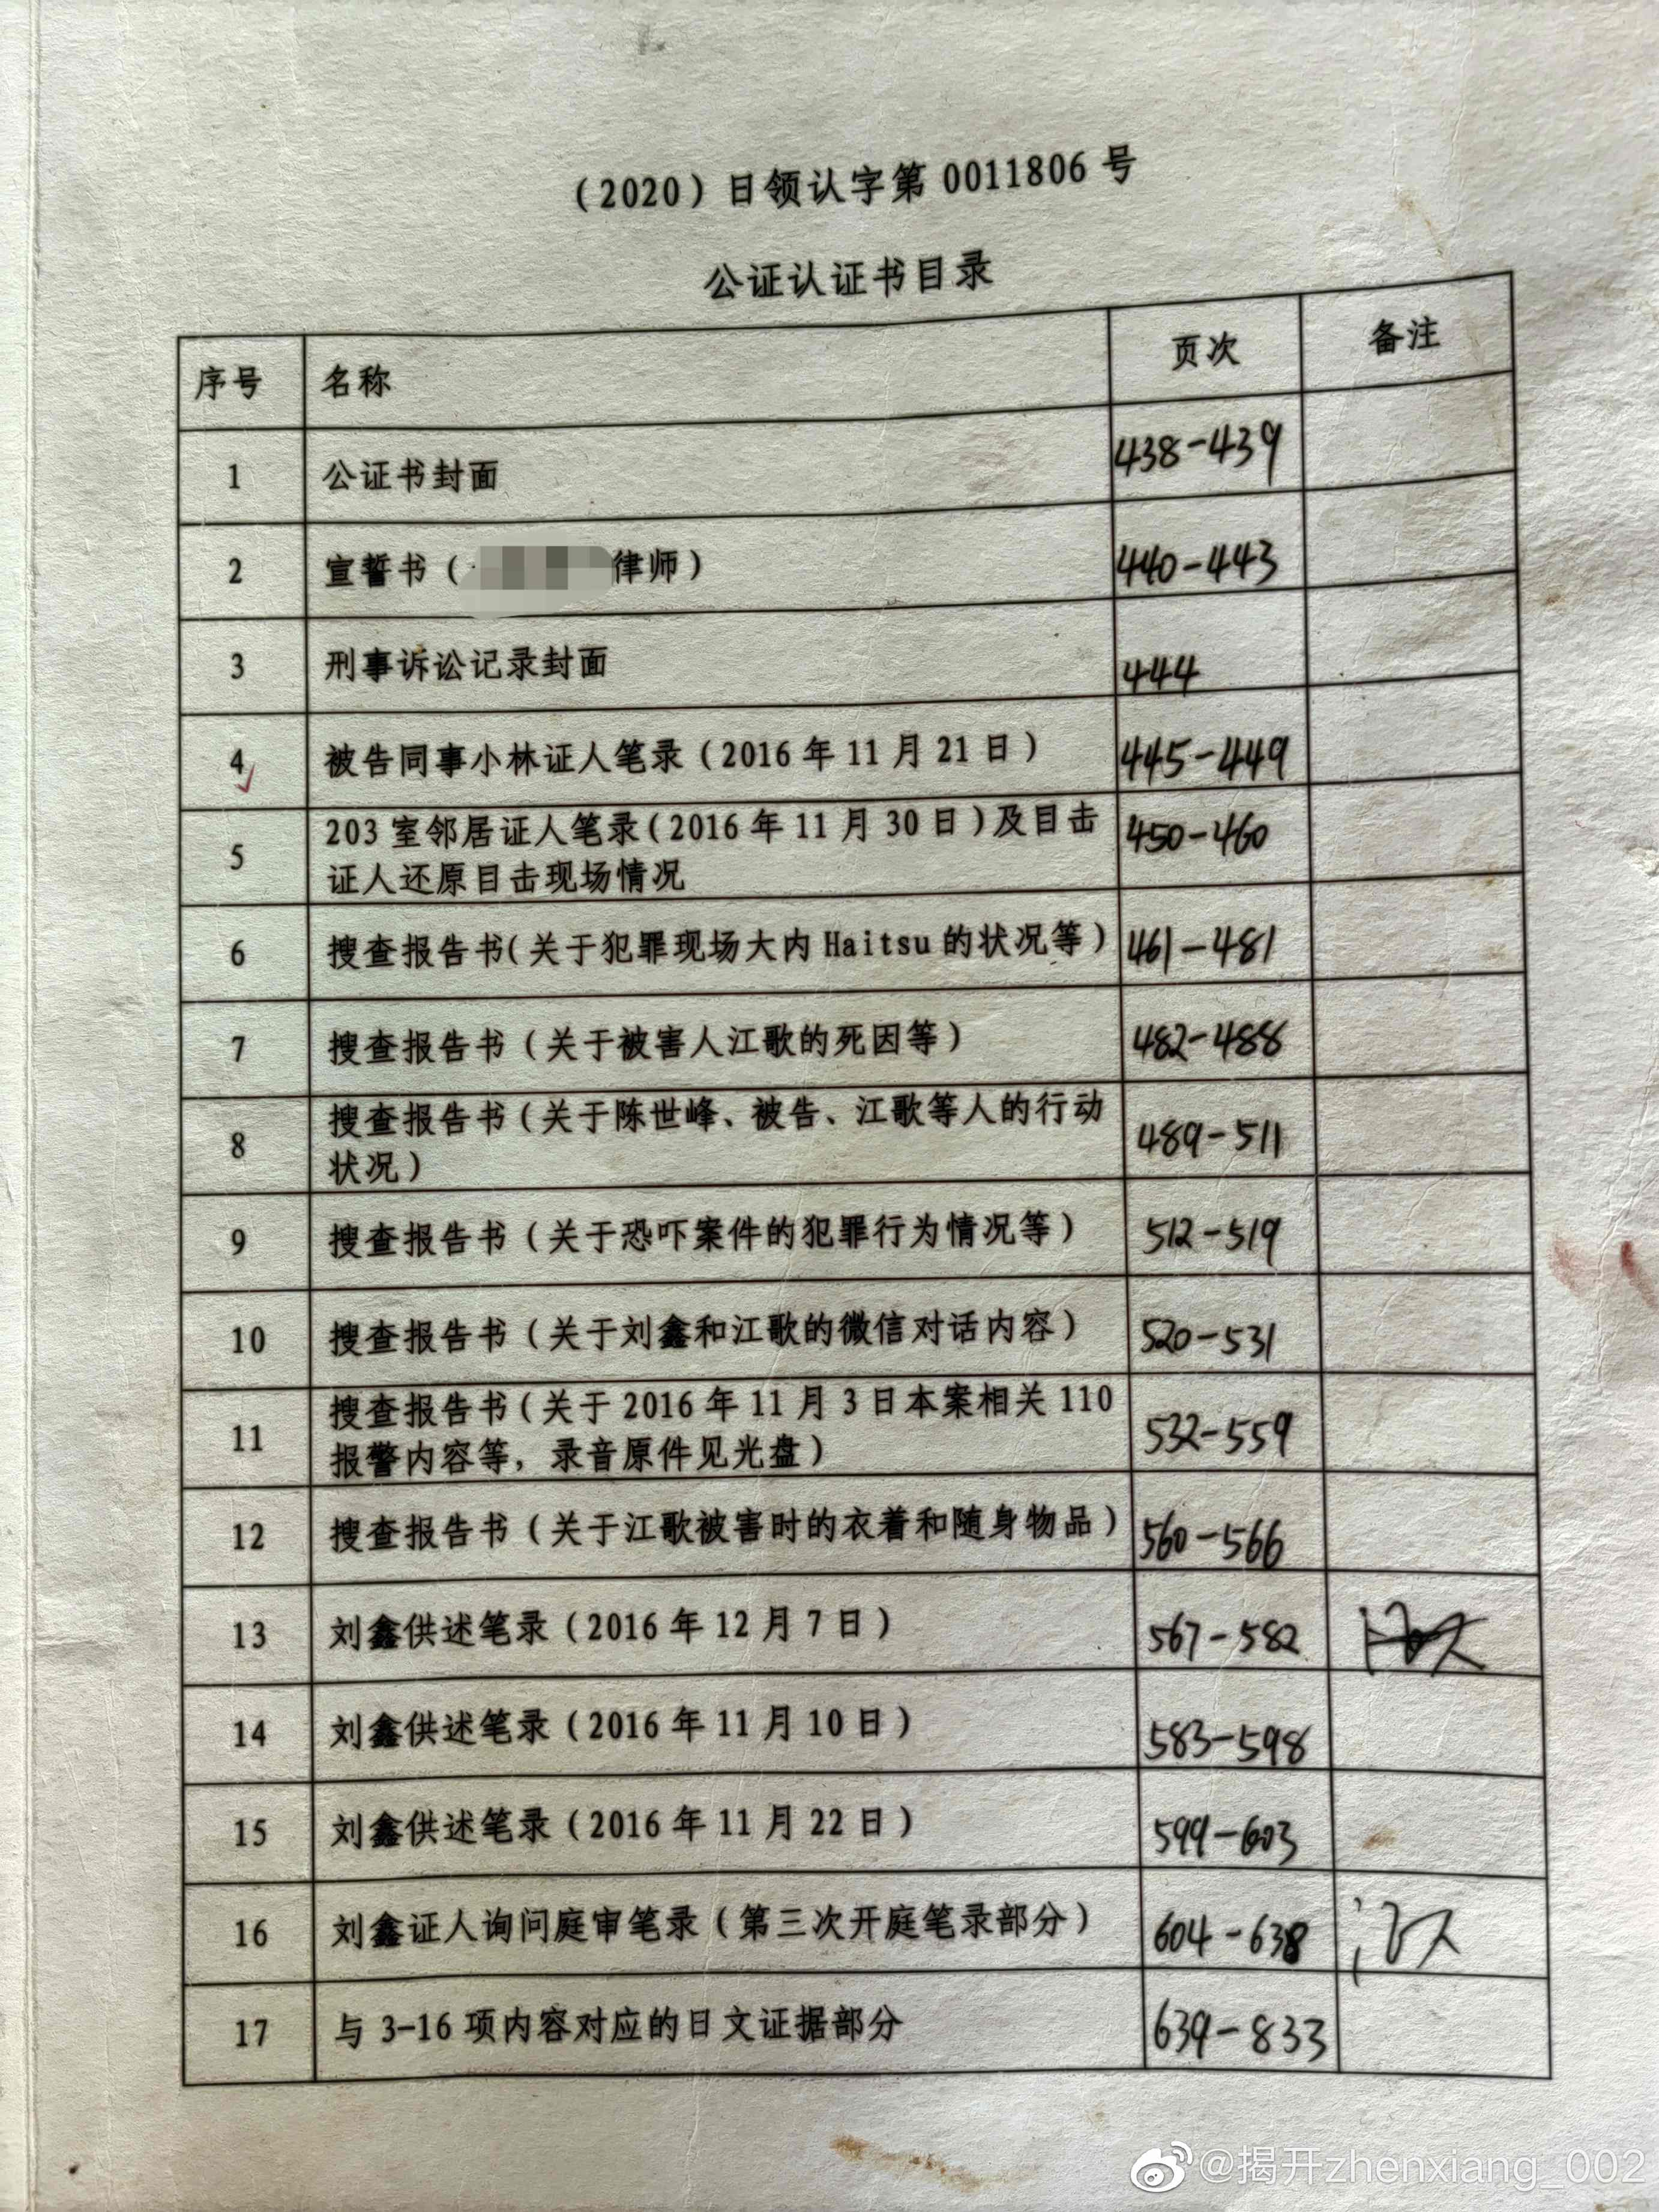 （2020）日领认字第 0011806 号
公证认证书目录
序号 名称 页次 备注
1 公证书封面 438-439
2 宣誓书（ 律师） 440-443
3 刑事诉讼记录封面 444
4 被告同事小林证人笔录（2016 年 11 月 21 日） 445-449
5 203 室邻居证人笔录（2016 年 11 月 30 日）及目击 450-460
证人还原目击现场情况
6 搜查报告书（关于犯罪现场大内 Haitsu 的状况等） 461-481
7 搜查报告书（关于被害人江歌的死因等） 482-488
8 搜查报告书（关于陈世峰、被告、江歌等人的行动 489-511
状况）
9 搜查报告书（关于恐吓案件的犯罪行为情况等） 512-519
10 搜查报告书（关于刘鑫和江歌的微信对话内容） 520-531
11 搜查报告书（关于 2016 年 11 月 3 日本案相关 110 532-559
报警内容等，录音原件见光盘）
12 搜查报告书（关于江歌被害时的衣着和随身物品） 560-566
13 刘鑫供述笔录（2016 年 12 月 7 日） 567-582
14 刘鑫供述笔录（2016 年 11 月 10 日） 583-598
15 刘鑫供述笔录（2016 年 11 月 22 日） 599-603
16 刘鑫证人询问庭审笔录（第三次开庭笔录部分） 604-638
17 与 3-16 项内容对应的日文证据部分 639-833
@揭开zhenxiang_002